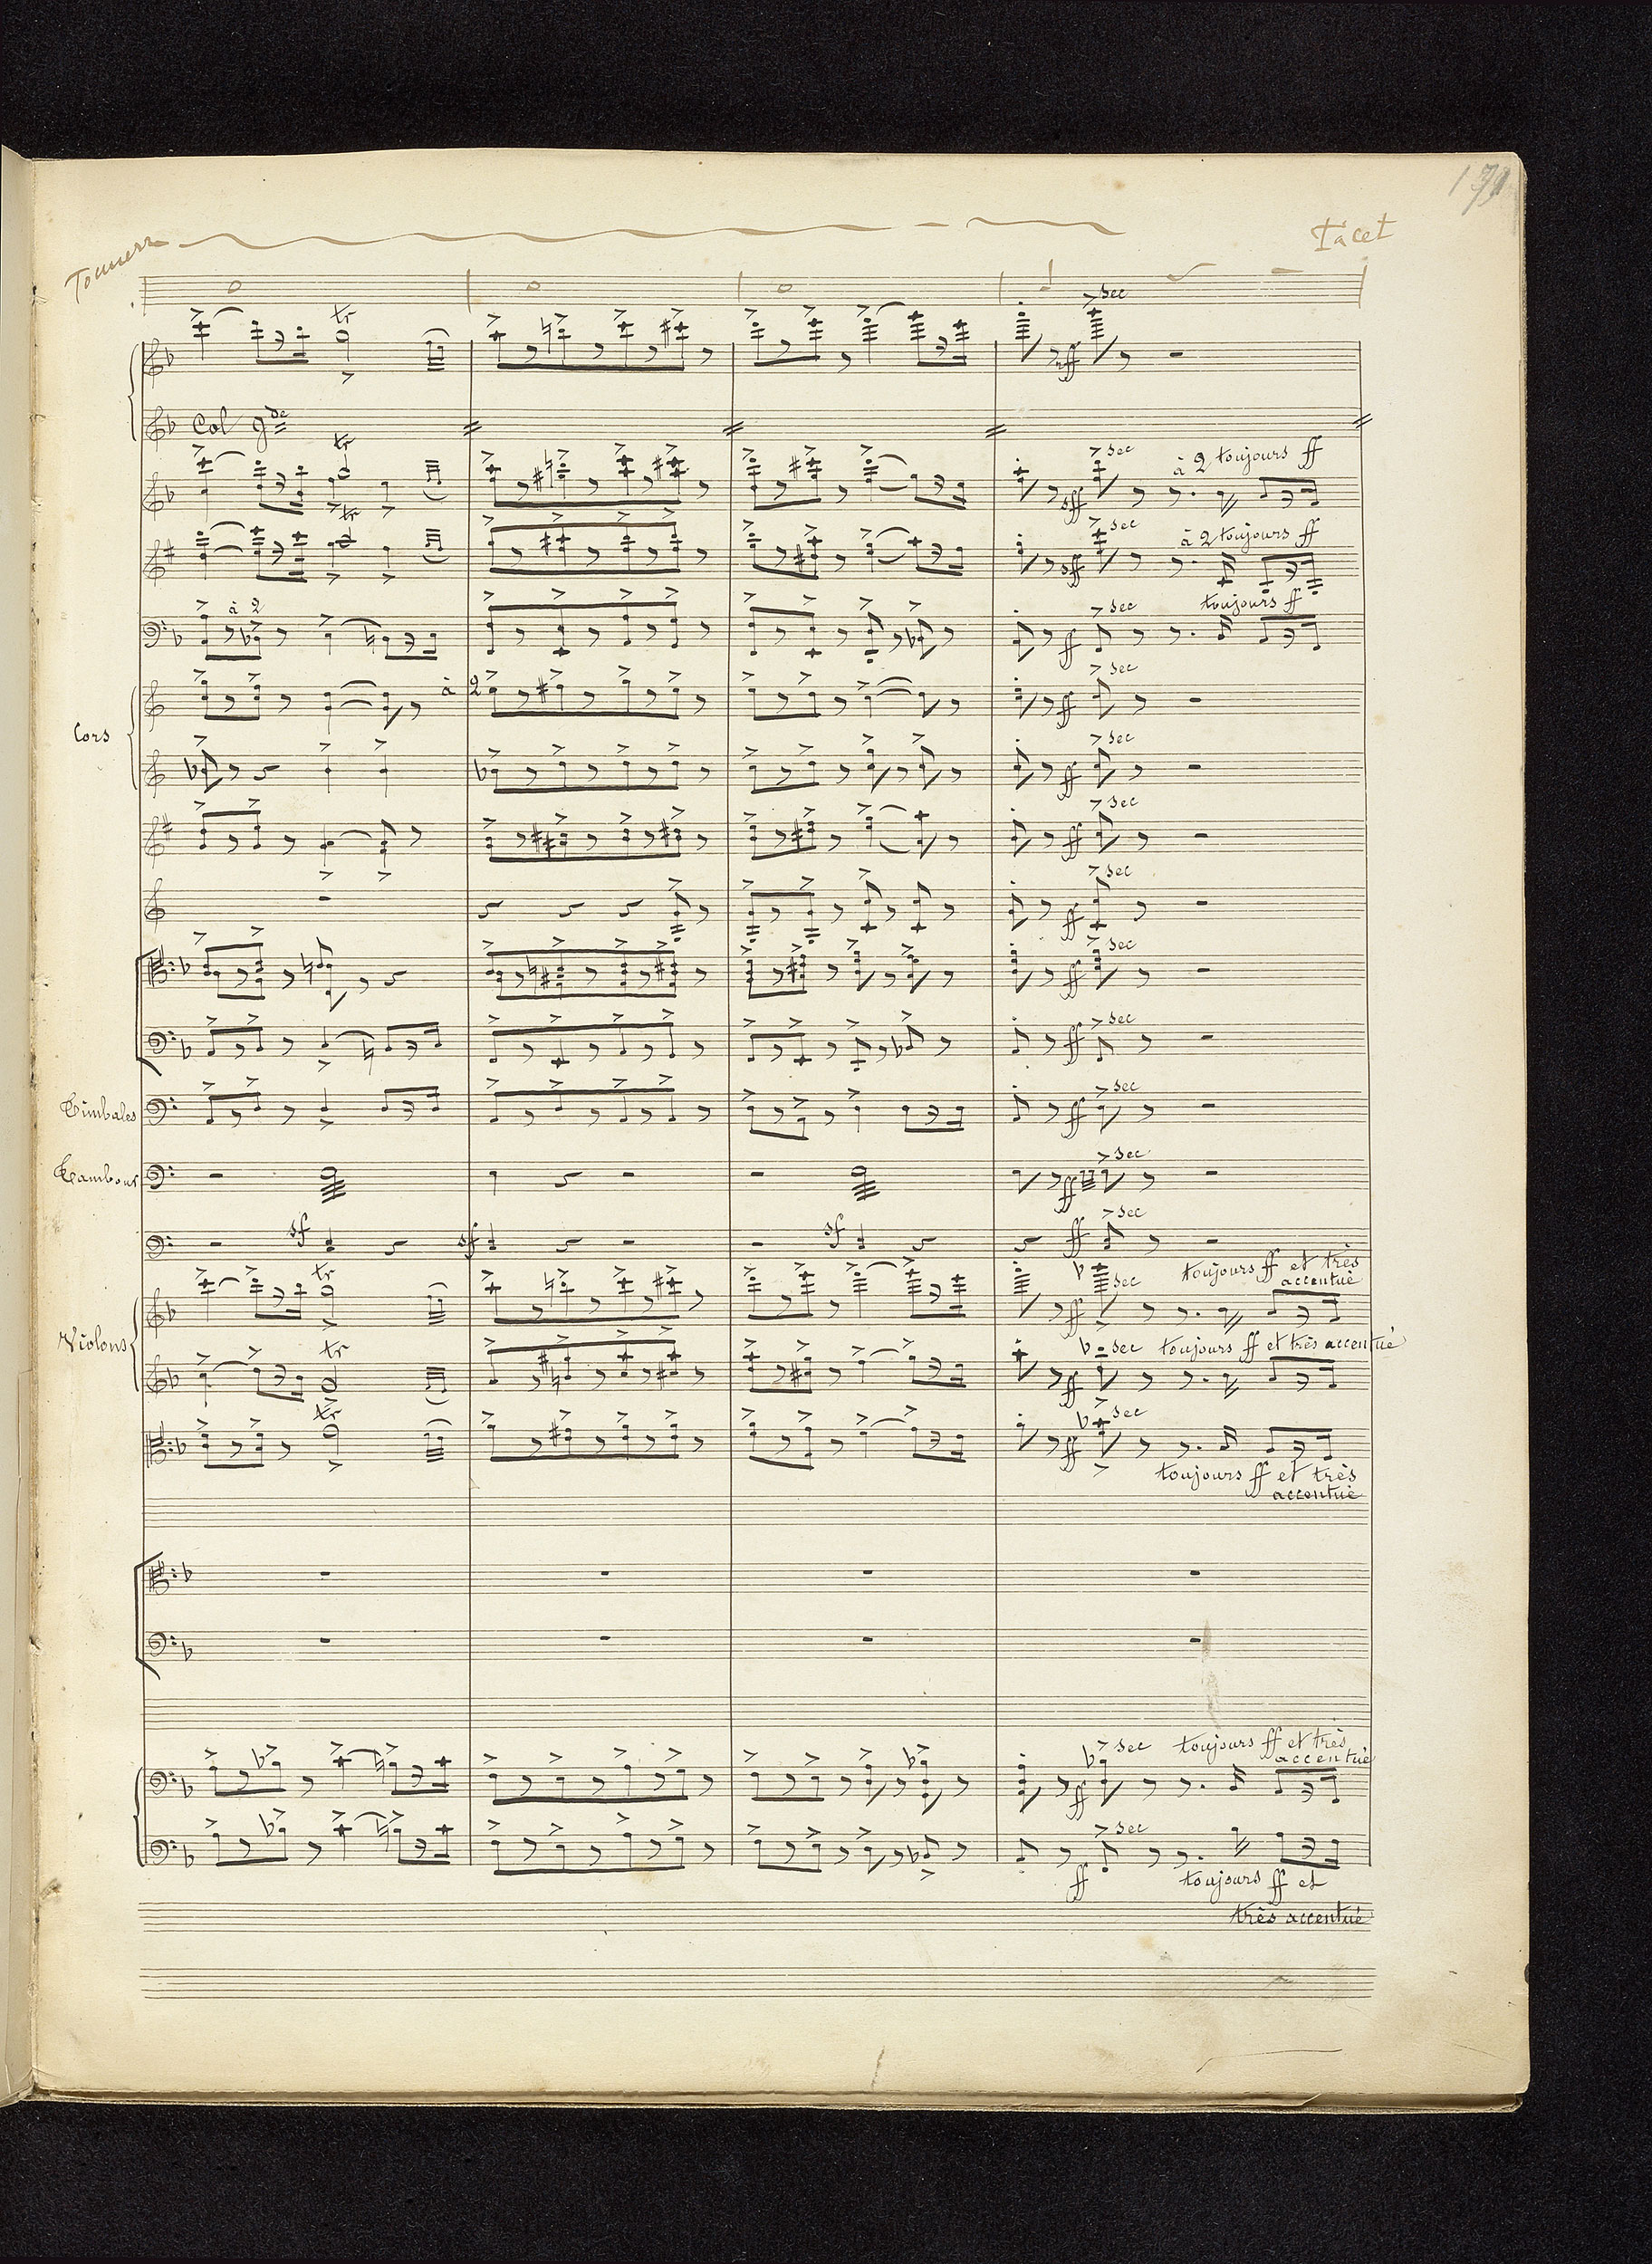 Tacet
sec
tr
Col gde
tr
sec
à 2 toujours ff
sff
tr
sec
à 2 toujours ff
sff
à 2
sec
toujours ff
ff
à 2
sec
ff
Cors
sec
ff
sec
ff
sec
ff
sec
ff
sec
ff
Timbales
sec
ff
Tambour
sec
ff
sf
sf
sf
ff
sec
tr
sec
toujours ff et très
accentué
ff
Violons
tr
sec
toujours ff et très accentué
ff
tr
sec
ff
toujours ff et très
accentué
sec
toujours ff et très
accentué
ff
sec
ff
toujours ff et
très accentué